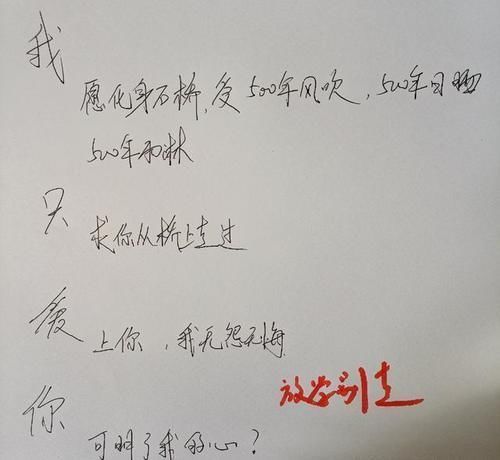 我
愿化身石桥,受500年风吹,500年日晒
500年雨淋
只
求你从桥上走过
爱
上你,我无怨无悔
你
放学别走
可明了我的心?